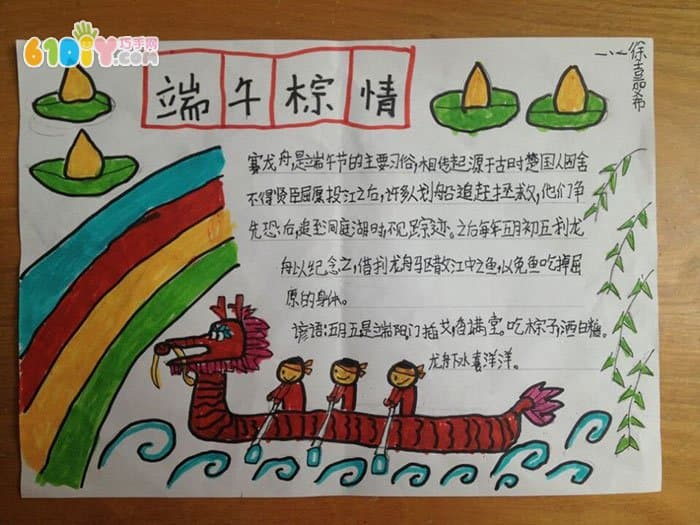 61DIY巧手网
.com
端午棕情
赛龙舟,是端午节的主要习俗,相传起源于古时楚国人因舍
不得贤臣屈原投江之后,许多人划船追赶拯救,他们争
先恐后,追至洞庭湖时不见踪迹。之后每年五月初五划龙
舟以纪念之,借划龙舟驱散江中之鱼,以免鱼吃掉屈
原的身体。
谚语:五月五是端阳,门插艾,香满堂。吃粽子,洒白糖。
龙舟下水喜洋洋。